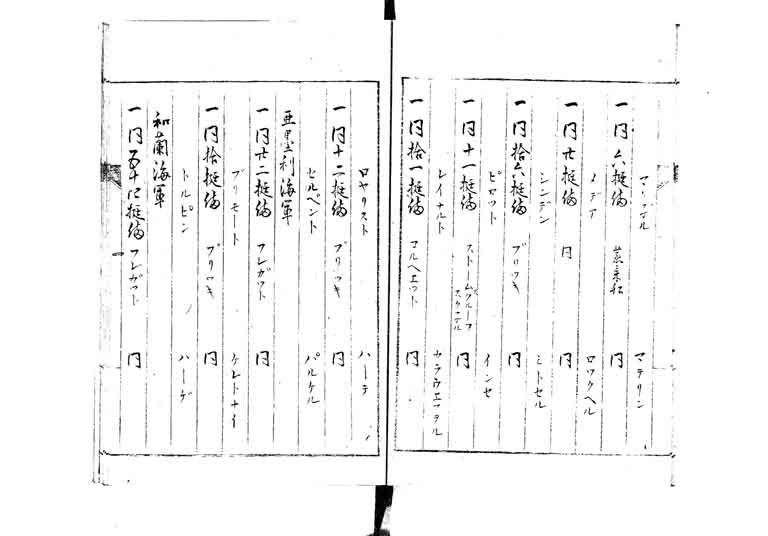 マリネル マテリン
一 同六挺備 蒸気船 同
メデア ロツクヘル
一 同廿挺備 同 同
シンデン ミトセル
一 同拾六挺備 ブリツキ 同
ピロット インセ
一 同十一挺備 ストームスクルーフ スクーネル 同
レイナルト カラウエツテル
一 同拾一挺備 コルヘット 同
ロヤリスト ハーテ
一 同十二挺備 ブリツキ 同
セルペント パルケル
亜墨利海軍
一 同廿二挺備 フレガツト 同
プリモート ケレトナイ
一 同拾挺備 ブリツキ 同
トルピン ハーゲ
和蘭海軍
一 同五十四挺備 フレガツト 同